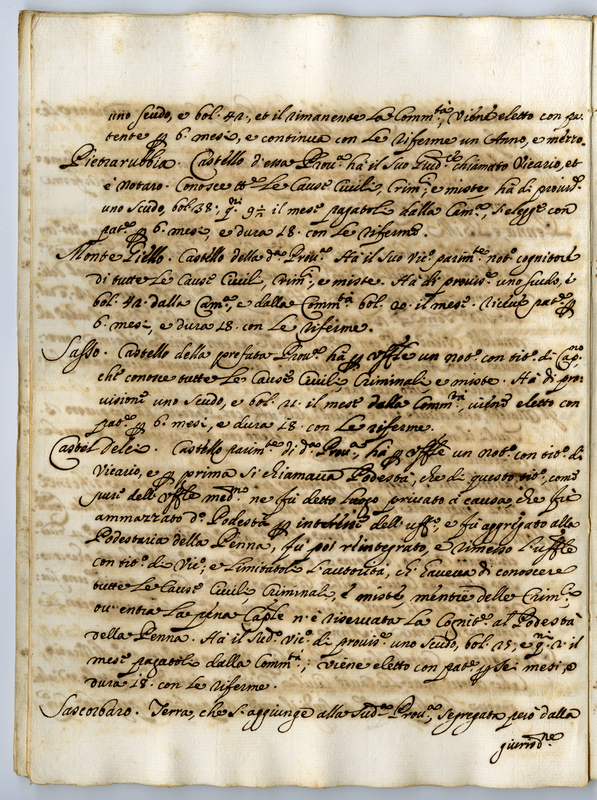 uno scudo, e bol. 42, et il rimanente la Comm.tà, Viene eletto con pa=
tente p 6. mesi, e continua con le riferme un Anno, e mezzo.
Pietrarubbia. Castello d'essa Prou.a hà il suo chiamato Vicario, et
è Notaro. Conosce le Cause Ciuili, Crim.li e miste hà di prouis.e
uno scudo, bol. 38. q. 9 il mese pagatoli dalla Cam.a, si elegge con
pat.e p 6. mesi, e dura 18. con le riferme.
Monte Tiello. Castello della d.a Prou.a Hà il suo Vic.o parim.te not.o cognitore
di tutte le Cause Ciuili, Crim.li, e miste. Hà di prouis.e uno scudo, e
bol. 42. dalla Cam.a, e dalla Comm.tà bol. 20. il mese. Riceue pat.e p
6. mesi, e dura 18. con le riferme.
Sasso. Castello della prefata Prou.a hà p Uffle un not.o con tit.o di Cap.no
che conosce tutte le Cause Ciuili Criminali e miste. Hà di pro=
uisione uno scudo, e bol. 21. il mese dalla Comm.tà, viene eletto con
pat.e p 6. mesi, e dura 18. con le riferme.
Casteldelci. Castello parim.te di d.a Prou.a, hà p Uffle un not.o con tit.o di
Vicario, e p prima si chiamaua Podestà, che di questo tit.o, come
dell'Uffle med.mo ne fù detto luogo priuato à causa, che fù
ammazzato d.o Podestà p dell'uff.o, e fù aggregato alla
Podestaria della Penna, fù poi reintegrato, e rimesso l'Uffle
con tit.o di Vic.o, e limitatoli l'autorità, ch'haueua di conoscere
tutte le Cause Ciuili, Criminali, e miste, mentre delle Crim.li,
ou'entra la pena Caple n'è riseruata la Cognit.e al Podestà
della Penna. Hà il sud.o Vic.o di prouis.e uno scudo, bol. 25, e q. 2. il
mese pagatoli dalla Comm.tà; viene eletto con pat.e p sei mesi, e
dura 18. con le riferme.
Sascorbaro. Terra, che si aggiunge alla sud.a Prou.a, segregata però dalla
giurisd.ne